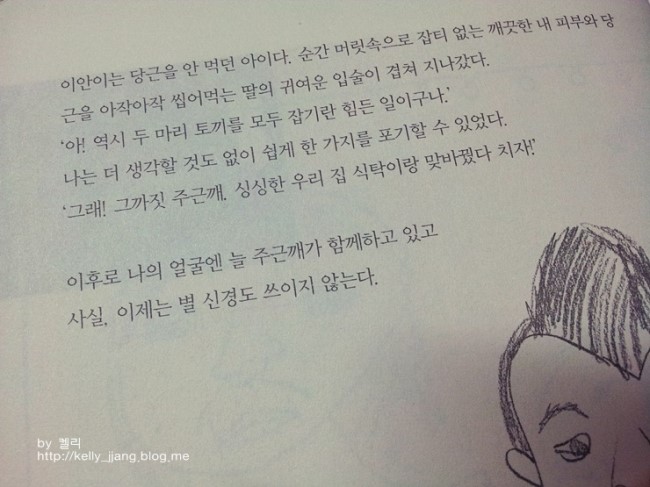 이안이는 당근을 안 먹던 아이다. 순간 머릿속으로 잡티 없는 깨끗한 내 피부와 당
근을 아작아작 씹어먹는 딸의 귀여운 입술이 겹쳐 지나갔다.
‘아! 역시 두 마리 토끼를 모두 잡기란 힘든 일이구나.’
나는 더 생각할 것도 없이 쉽게 한 가지를 포기할 수 있었다.
‘그래! 그까짓 주근깨. 싱싱한 우리 집 식탁이랑 맞바꿨다 치자!’
이후로 나의 얼굴엔 늘 주근깨가 함께하고 있고
사실, 이제는 별 신경도 쓰이지 않는다.
by 켈리
http://kelly_jjang.blog.me